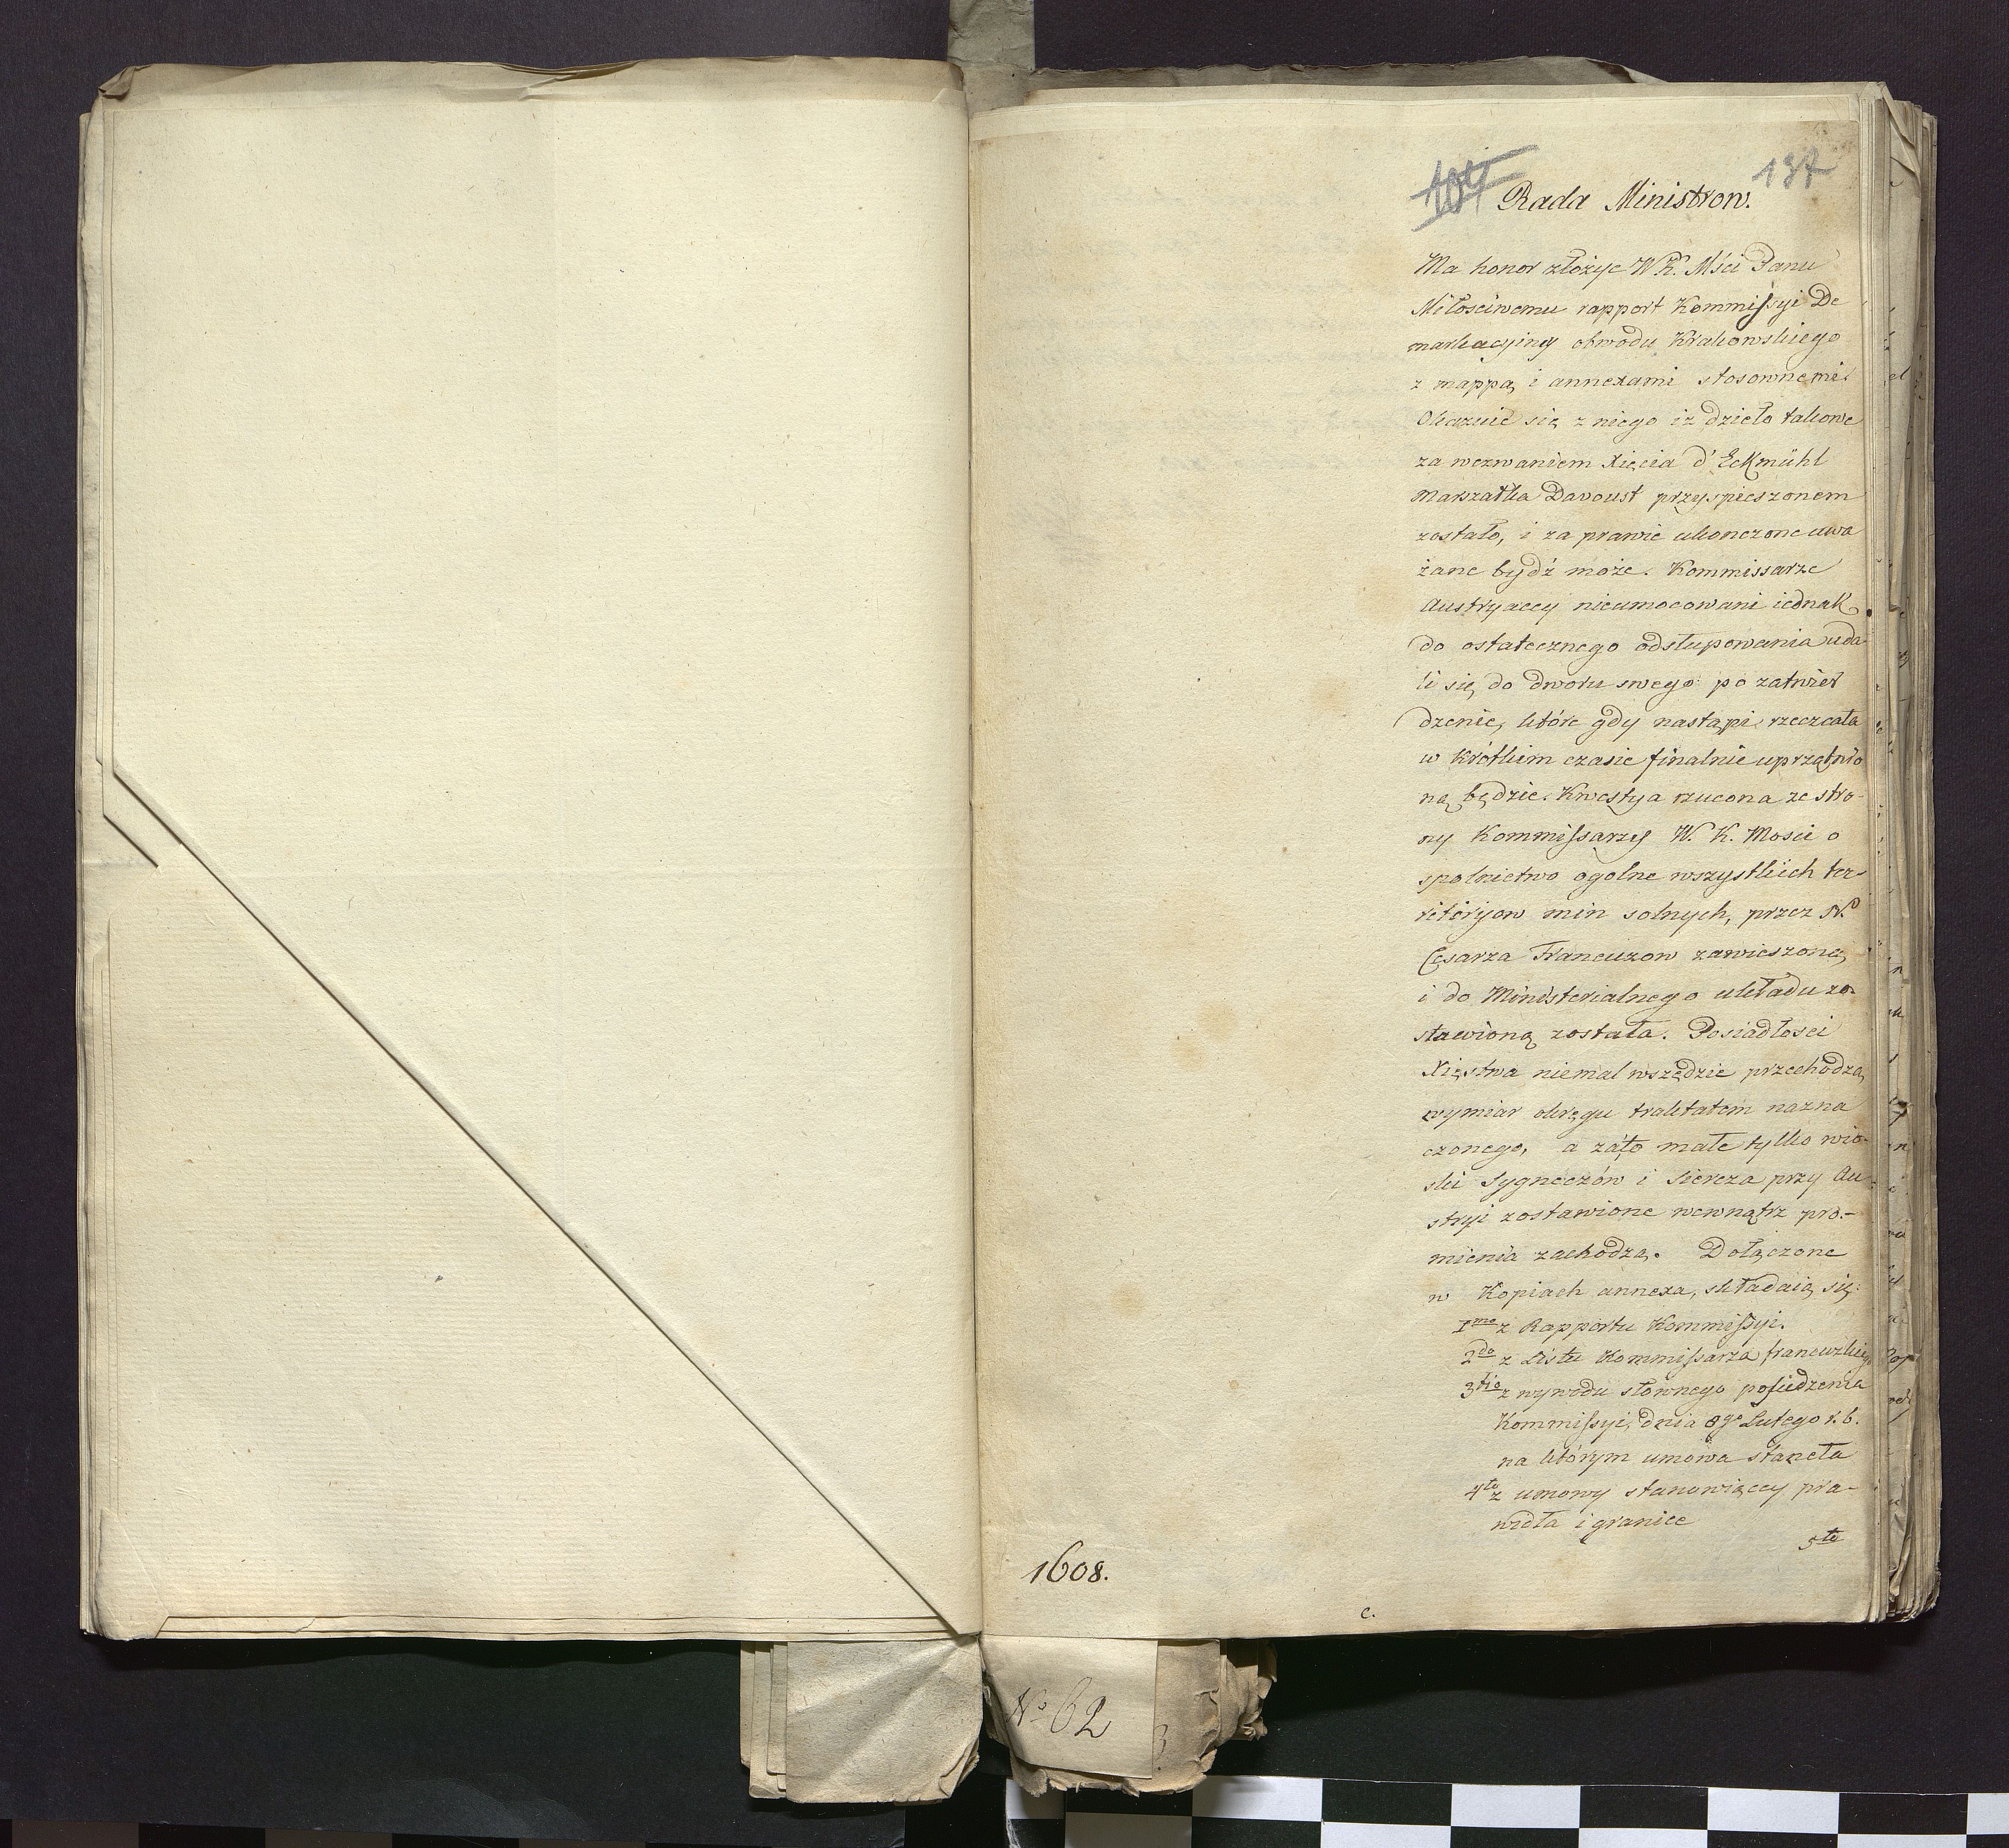 107 137
Rada Ministrow.
Ma honor złożyc W K. Mści Panu
Miłosciwemu rapport Kommissyi De
markacyiney obwodu Krakowskiego
z mappą i annexami stosownemi
Okazuie się z niego iż dzieło takowe
za wezwaniem Xięcia d'Eckmühl
Marszałka Davoust przyspieszonem
zostało, i za prawie ukonczone uwa
żane bydź może. Kommissarze
Austryaccy nieumocowani iednak
do ostatecznego odstupowania uda
li się do dworu swego po zatwier
dzenie, które gdy nastąpi rzecz cała
w krótkim czasie finalnie uprzątnio
ną będzie. Kwestya rzucona ze stro-
ny Kommissarzy W. K. Mosci o
spolnictwo ogolne wszystkich ter-
ritoryow min solnych, przez N.
Cesarza Francuzow zawieszoną
i do Ministerialnego układu zo-
stawioną została. Posiadłosci
Xięstwa niemal wszędzie przechodzą
wymiar okręgu traktatem nazna
czonego, a zato małe tylko wio-
ski Sygneczów i Siercza przy Au
stryi zostawione wewnątrz pro-
mienia zachodzą. Dołączone
w Kopiach annexa, składaią się:
1mo z Rapportu Kommissyi.
2do z Listu Kommissarza francuzkiego
3tio z wywodu słownego posiedzenia
Kommissyi, dnia 8go Lutego r. b.
na którym umowa stanęła
4to z umowy stanowiącey pra-
widła i granice
5to
1608.
c.
No 62